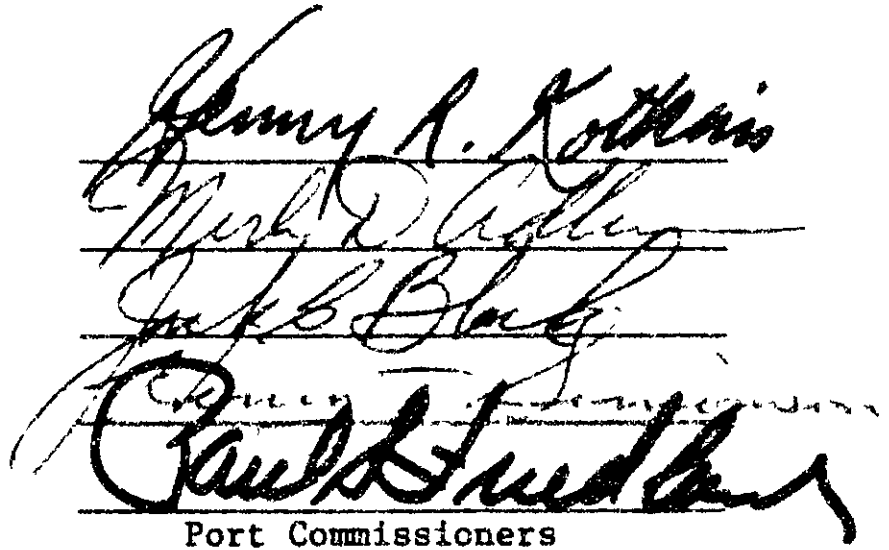 Henry R. Kotkins
Merle D. Adlum
Jack S. Block
Henry T. Simonson
Paul S. Friedlander
Port Commissioners